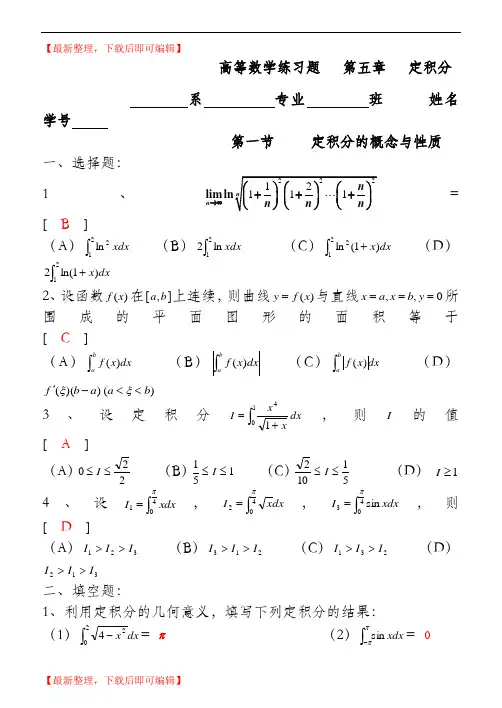 【最新整理,下载后即可编辑】
高等数学练习题 第五章 定积分
系 专业 班 姓名
学号
第一节 定积分的概念与性质
一、选择题:
1、$\lim_{n\to\infty}\ln\sqrt[n]{\left(1+\frac{1}{n}\right)^2\left(1+\frac{2}{n}\right)^2\cdots\left(1+\frac{n}{n}\right)^2}$ =
[ B ]
(A)$\int_1^2 \ln^2 xdx$ (B)$2\int_1^2 \ln xdx$ (C)$\int_1^2 \ln^2(1+x)dx$ (D)
$2\int_1^2 \ln(1+x)dx$
2、设函数$f(x)$在$[a,b]$上连续,则曲线$y=f(x)$与直线$x=a,x=b,y=0$所
围成的平面图形的面积等于
[ C ]
(A)$\int_a^b f(x)dx$ (B)$\left|\int_a^b f(x)dx\right|$ (C)$\int_a^b |f(x)|dx$ (D)
$f'(\xi)(b-a)\ (a<\xi<b)$
3、设定积分$I=\int_0^1 \frac{x^4}{\sqrt{1+x}}dx$,则$I$的值
[ A ]
(A)$0\le I\le\frac{\sqrt{2}}{2}$ (B)$\frac{1}{5}\le I\le 1$ (C)$\frac{\sqrt{2}}{10}\le I\le\frac{1}{5}$ (D)$I\ge 1$
4、设$I_1=\int_0^{\frac{\pi}{4}} xdx$,$I_2=\int_0^{\frac{\pi}{4}} \sqrt{x}dx$,$I_3=\int_0^{\frac{\pi}{4}} \sin xdx$,则
[ D ]
(A)$I_1>I_2>I_3$ (B)$I_3>I_1>I_2$ (C)$I_1>I_3>I_2$ (D)
$I_2>I_1>I_3$
二、填空题:
1、利用定积分的几何意义,填写下列定积分的结果:
(1)$\int_0^2 \sqrt{4-x^2}dx$= π (2)$\int_{-\pi}^{\pi} \sin xdx$= 0
【最新整理,下载后即可编辑】